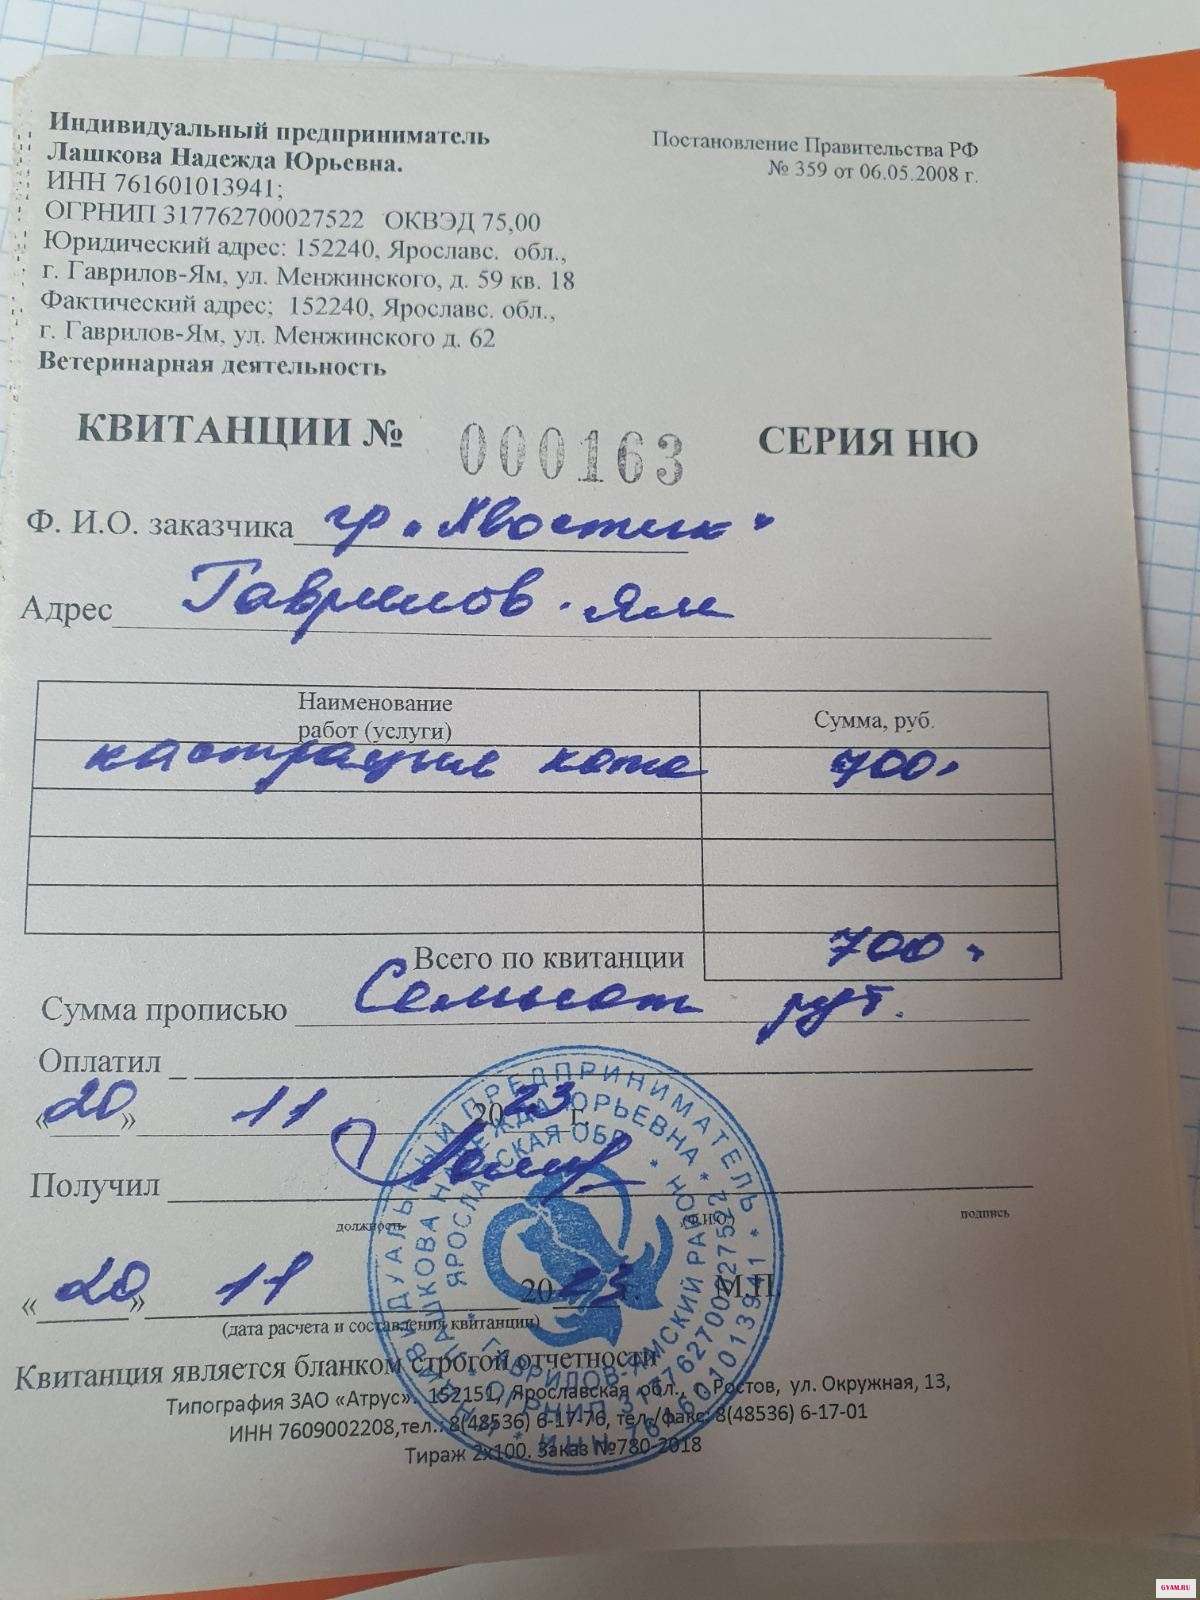 Индивидуальный предприниматель
Лашкова Надежда Юрьевна.
ИНН 761601013941;
ОГРНИП 317762700027522 ОКВЭД 75,00
Юридический адрес: 152240, Ярославс. обл.,
г. Гаврилов-Ям, ул. Менжинского, д. 59 кв. 18
Фактический адрес; 152240, Ярославс. обл.,
г. Гаврилов-Ям, ул. Менжинского д. 62
Ветеринарная деятельность
Постановление Правительства РФ
№ 359 от 06.05.2008 г.
КВИТАНЦИИ № 000163 СЕРИЯ НЮ
Ф. И.О. заказчика гр "Хвостик"
Адрес Гаврилов-Ям
Наименование
работ (услуги)
Сумма, руб.
кастрация кота 700-
Всего по квитанции 700-
Сумма прописью Семьсот руб.
Оплатил
«20» 11 2023 г.
Получил
должность (Ф.И.О) подпись
«20» 11 2023 г. М.П.
(дата расчета и составления квитанции)
Квитанция является бланком строгой отчетности
Типография ЗАО «Атрус». 152151, Ярославская обл., г. Ростов, ул. Окружная, 13,
ИНН 7609002208,тел.: 8(48536) 6-17-76, тел./факс: 8(48536) 6-17-01
Тираж 2х100. Заказ №780-2018
ИНДИВИДУАЛЬНЫЙ ПРЕДПРИНИМАТЕЛЬ *
ЛАШКОВА НАДЕЖДА ЮРЬЕВНА *
ЯРОСЛАВСКАЯ ОБЛ. *
ГАВРИЛОВ-ЯМСКИЙ РАЙОН *
* ОГРНИП 317762700027522
* ИНН 761601013941 *
GYAM.RU